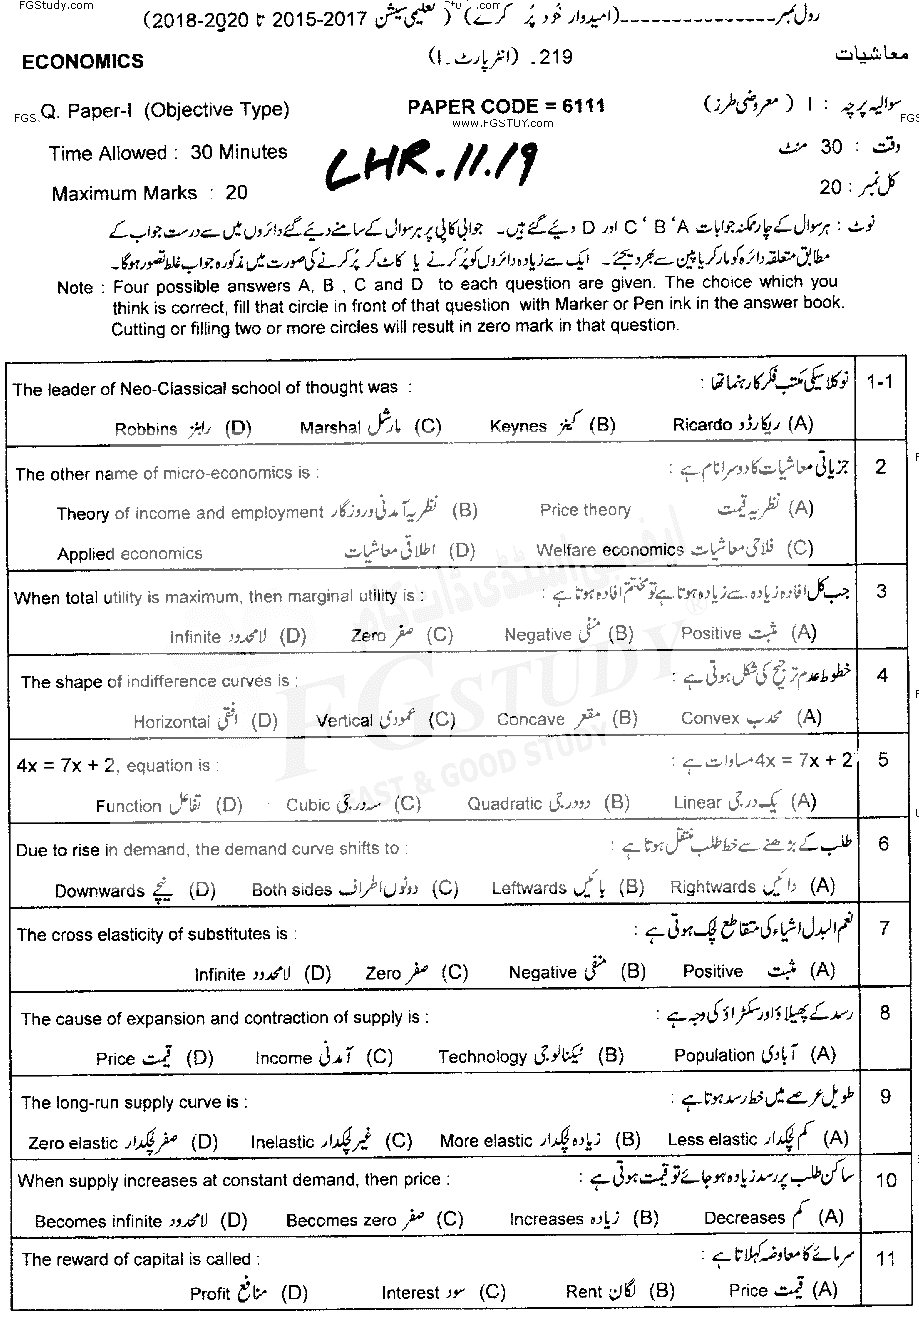 FGStudy.com
رول نمبر ---------------- (امیدوار خود پُر کرے) ( تعلیمی سیشن 2017-2015 تا 2020-2018)
ECONOMICS 219۔ (انٹر پارٹ ۔ I) معاشیات
Q. Paper-I (Objective Type) PAPER CODE = 6111 سوالیہ پرچہ : I (معروضی طرز)
FGS www.FGSTUY.com FGS
Time Allowed : 30 Minutes وقت : 30 منٹ
LHR.11.19
Maximum Marks : 20 کل نمبر : 20
نوٹ : ہر سوال کے چار ممکنہ جوابات A ' B ' C اور D دیئے گئے ہیں۔ جوابی کاپی پر ہر سوال کے سامنے دیئے گئے دائروں میں سے درست جواب کے
مطابق متعلقہ دائرہ کو مارکر یا پین سے بھر دیجئے۔ ایک سے زیادہ دائروں کو پُر کرنے یا کاٹ کر پُر کرنے کی صورت میں مذکورہ جواب غلط تصور ہوگا۔
Note : Four possible answers A, B , C and D to each question are given. The choice which you
think is correct, fill that circle in front of that question with Marker or Pen ink in the answer book.
Cutting or filling two or more circles will result in zero mark in that question.
The leader of Neo-Classical school of thought was : نوکلاسیکی مکتب فکر کا رہنما تھا : 1-1
Robbins رابنز (D) Marshal مارشل (C) Keynes کینز (B) Ricardo ریکارڈو (A)
The other name of micro-economics is : جزیاتی معاشیات کا دوسرا نام ہے : 2
Theory of income and employment نظریہ آمدنی و روزگار (B) Price theory نظریہ قیمت (A)
Applied economics اطلاقی معاشیات (D) Welfare economics فلاحی معاشیات (C)
When total utility is maximum, then marginal utility is : جب کل افادہ زیادہ سے زیادہ ہوتا ہے تو مختتم افادہ ہوتا ہے : 3
Infinite لامحدود (D) Zero صفر (C) Negative منفی (B) Positive مثبت (A)
The shape of indifference curves is : خطوط عدم ترجیح کی شکل ہوتی ہے : 4
Horizontal افقی (D) Vertical عمودی (C) Concave مقعر (B) Convex محدب (A)
4x = 7x + 2, equation is : 4x = 7x + 2 مساوات ہے : 5
Function تفاعل (D) Cubic سہ درجی (C) Quadratic دو درجی (B) Linear یک درجی (A)
Due to rise in demand, the demand curve shifts to : طلب کے بڑھنے سے خط طلب منتقل ہوتا ہے : 6
Downwards نیچے (D) Both sides دونوں اطراف (C) Leftwards بائیں (B) Rightwards دائیں (A)
The cross elasticity of substitutes is : نعم البدل اشیاء کی متقاطع لچک ہوتی ہے : 7
Infinite لامحدود (D) Zero صفر (C) Negative منفی (B) Positive مثبت (A)
The cause of expansion and contraction of supply is : رسد کے پھیلاؤ اور سکڑاؤ کی وجہ ہے : 8
Price قیمت (D) Income آمدنی (C) Technology ٹیکنالوجی (B) Population آبادی (A)
The long-run supply curve is : طویل عرصے میں خط رسد ہوتا ہے : 9
Zero elastic صفر لچکدار (D) Inelastic غیر لچکدار (C) More elastic زیادہ لچکدار (B) Less elastic کم لچکدار (A)
When supply increases at constant demand, then price : ساکن طلب پر رسد زیادہ ہو جائے تو قیمت ہوتی ہے : 10
Becomes infinite لامحدود (D) Becomes zero صفر (C) Increases زیادہ (B) Decreases کم (A)
The reward of capital is called : سرمائے کا معاوضہ کہلاتا ہے : 11
Profit منافع (D) Interest سود (C) Rent لگان (B) Price قیمت (A)
ایف جی اسٹڈی ڈاٹ کام
FGSTUDY ®
FAST & GOOD STUDY